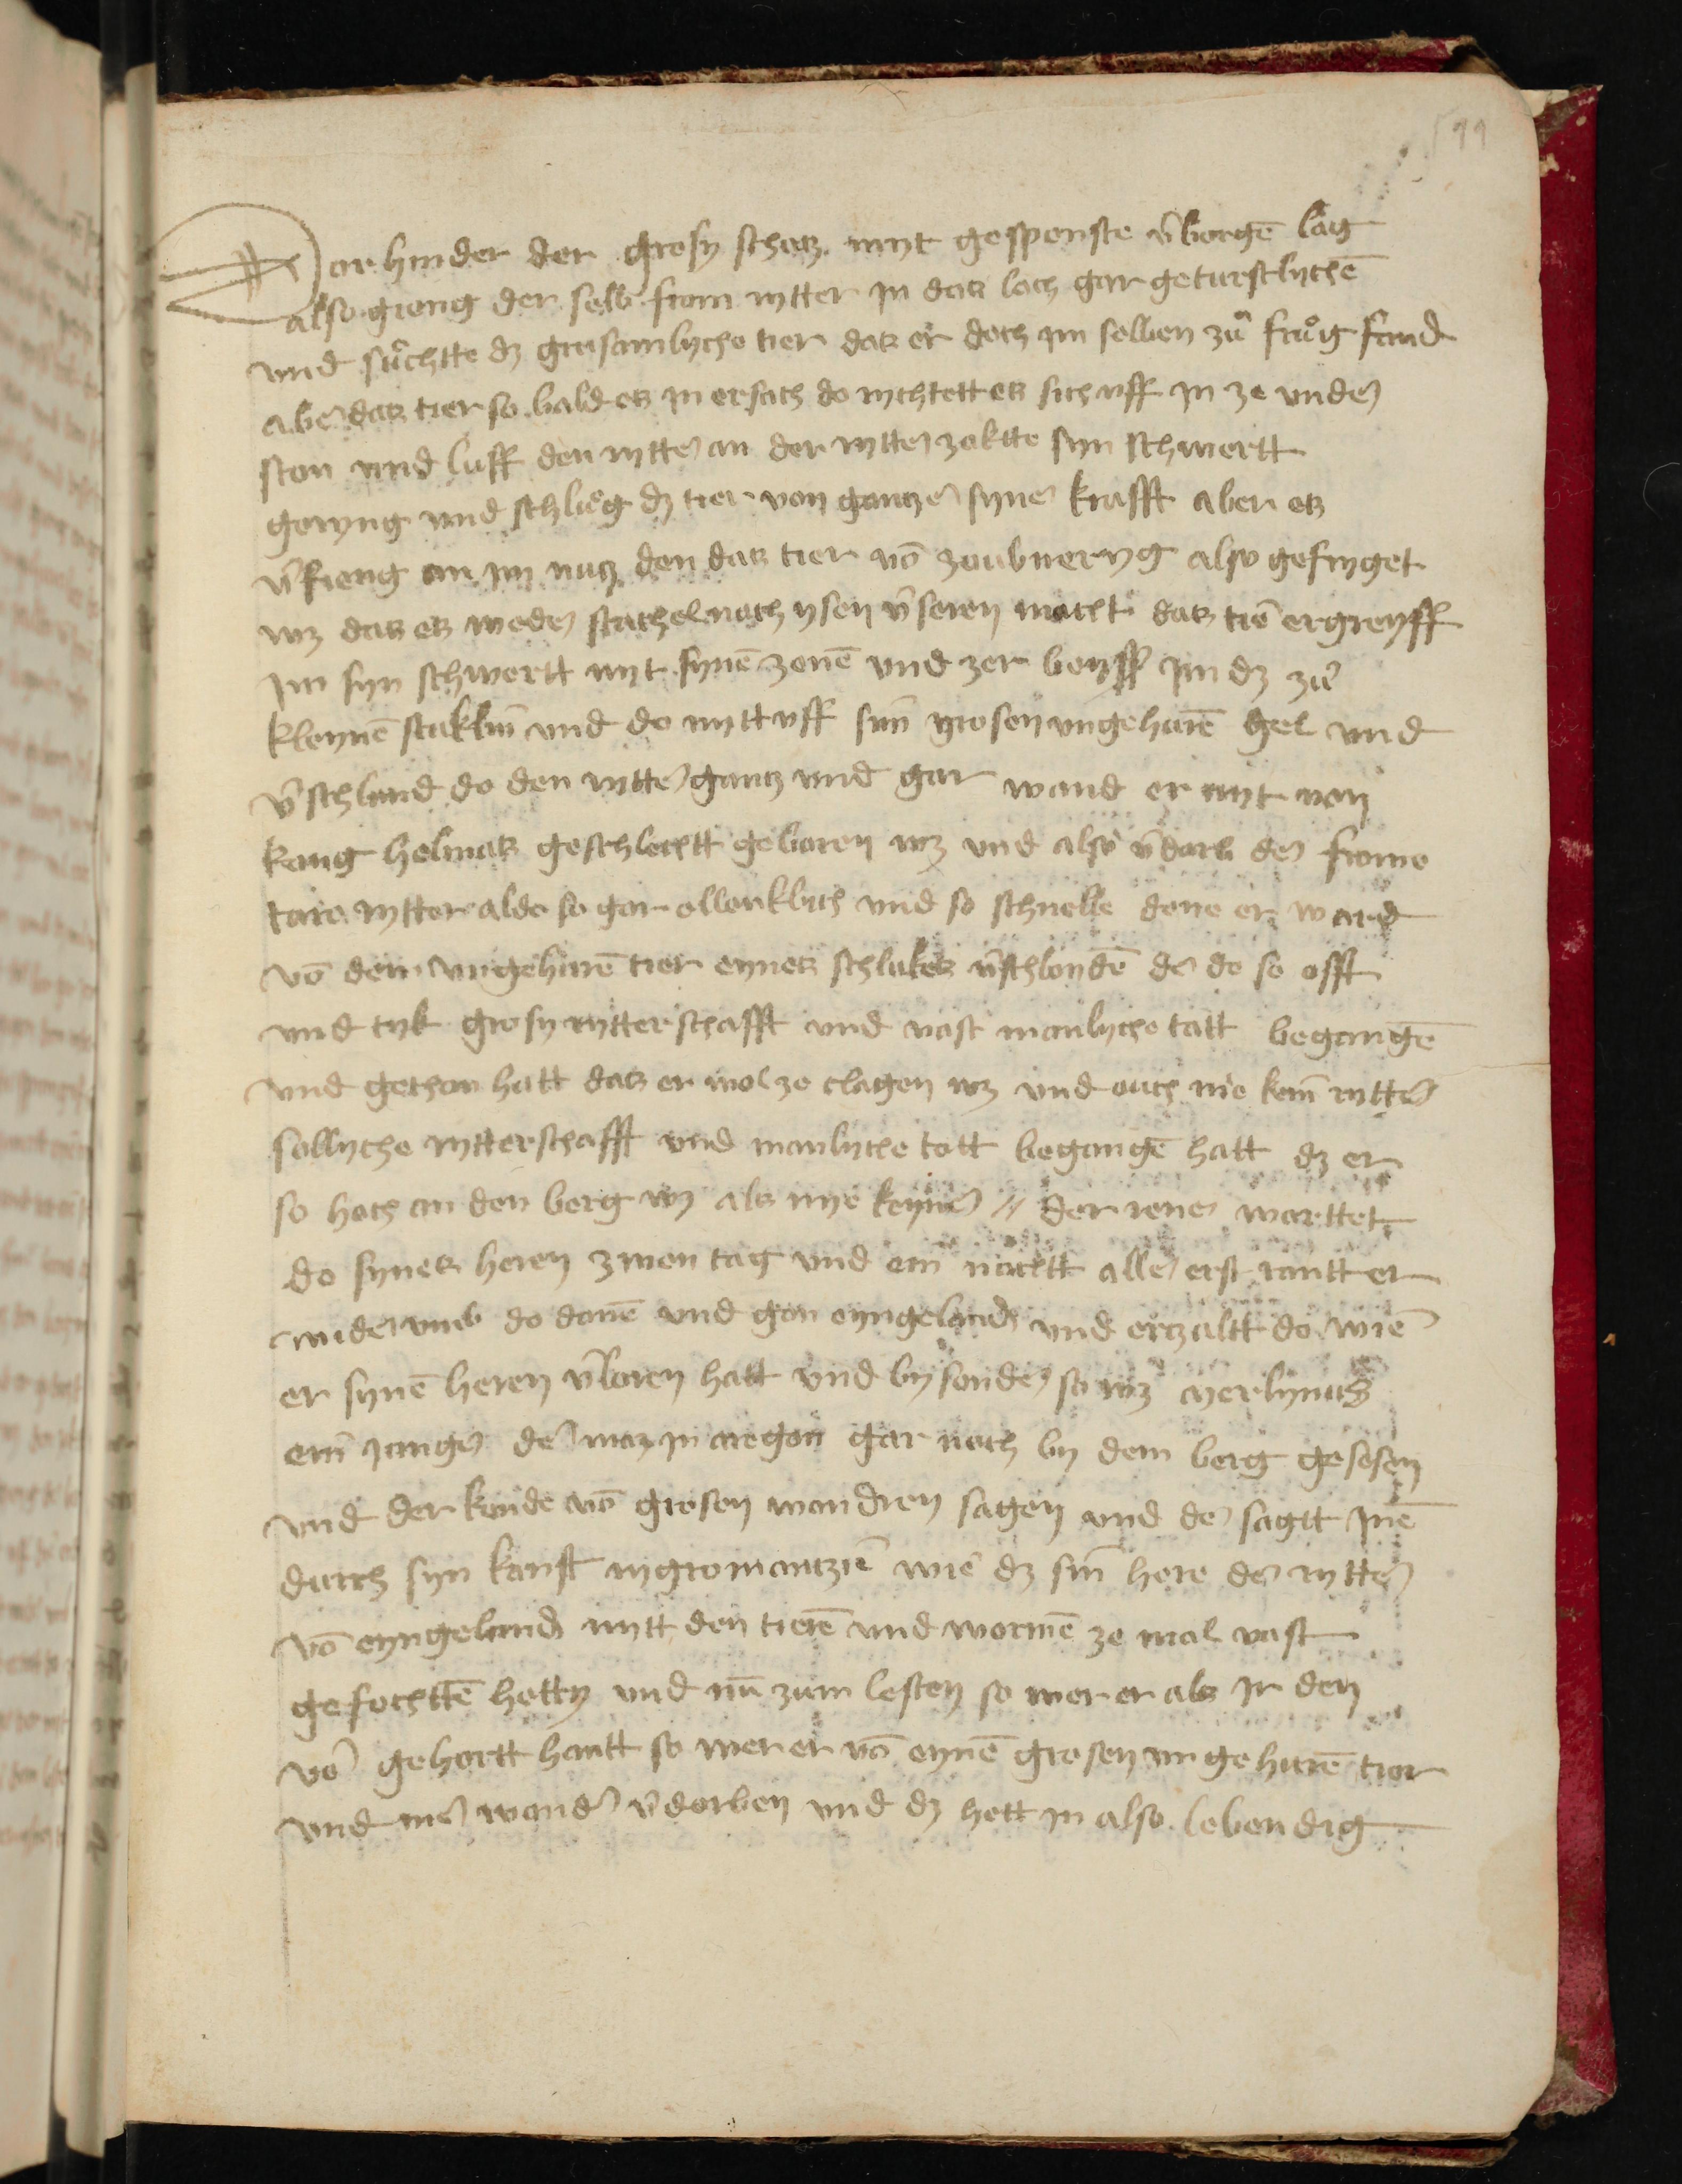 199
Dar hinder der grosy schatz myt gespenste v̄borgē lag
also gieng der selb from rytter jn das loch gar geturstlychē
vnd sůchtte dz grusamlyche tier das er doch jm selben zů frůg fand
aber das tier so bald es jn ersach do rychtett es sich vff jn ze vnder
ston vnd luff den rytter an der rytter zoktte syn schwertt
geryng vnd schlůg dz tier von gantzer syner krafft aber es
v̄fieng an jm nutz den das tier vō zoubrerӱg also gefryget
wz das es weder stachel noch ysen v̄seren mocht das tier ergreyff
jm syn schwertt myt synē zenē vnd zer beyss jm dz zů
kleynē stuklin vnd do mytt vff sim grosen vngehurē gel vnd
v̄schland do den rytter gantz vnd gar wand er nyt von
kang helmas geschlechtt geboren wz vnd also v̄darb der frome
ture rytter aldo so gar ellenklich vnd so schnelle dene er ward
vō dem vngehurē tier eynes schlukes v̄schlondē der do so offt
vnd tyk grosy rytterschafft vnd vast manlyche tatt begangē
vnd gethan hatt das er wol ze clagen wz vnd ouch nie kein rytter
sollyche rytterschafft vnd manlyche tott begangē hatt dz er
so hoch an den berg wz als nye keyner // der iener warttet
do synes heren zwen tag vnd ein nachtt aller erst rantt er
wider vmb do danē vnd gan eyngeland vnd erzaltt do wie
er synē heren v̄loren hatt vnd by sonder so wz merlynus
ein junger der waz jn aregon gar noch by dem berg gesesen
vnd der konde vō grosen wondren sagen vnd der sagtt jnē
durch syn kunst nygromantzie wie dz sin here der rytter
vō eyngeland mytt den tierē vnd wormē ze mal vast
gefochttē hetty vnd nū zum lesten so wer er als jr den
vor gehortt hantt so wer er vō eynē grosen vngehurē tier
vnd mer wonder v̄dorben vnd dz hett jn also lebendig